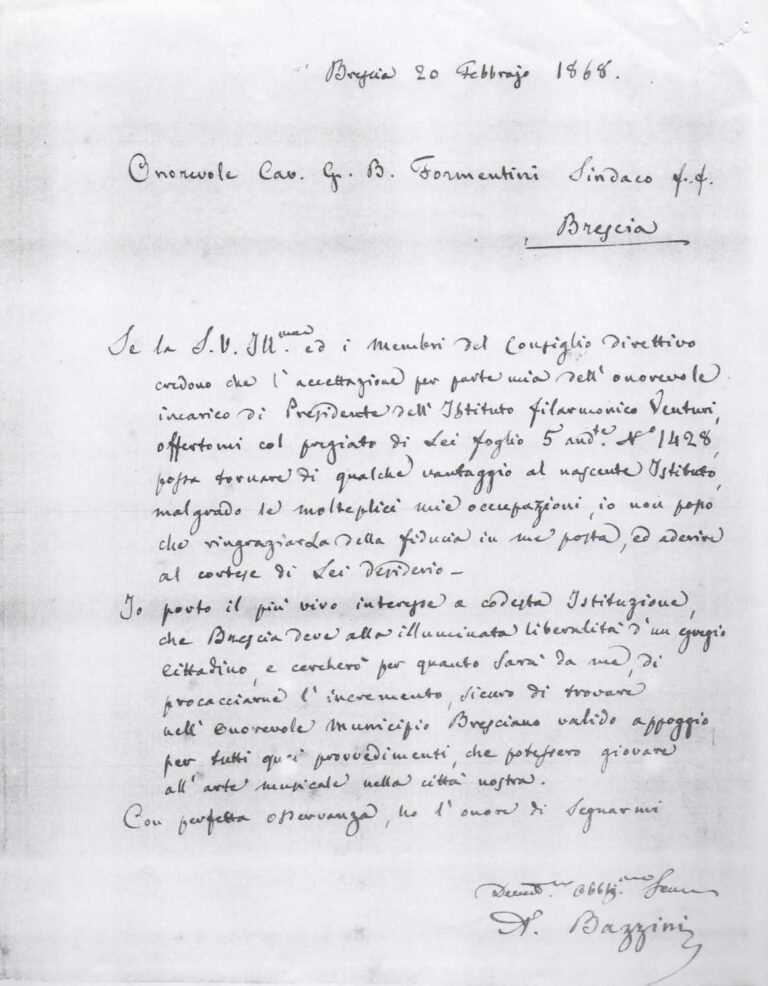 Brescia 20 Febbrajo 1868.
Onorevole Cav. G. B. Formentini Sindaco f.f.
Brescia
Se la S.V. Ill.ma ed i membri del Consiglio Direttivo
credono che l'accettazione per parte mia dell'onorevole
incarico di Presidente dell'Istituto filarmonico Venturi,
offertomi col pregiato di Lei foglio 5 andte. No 1428,
possa tornare di qualche vantaggio al nascente Istituto,
malgrado le molteplici mie occupazioni, io non posso
che ringraziarLa della fiducia in me posta, ed aderire
al cortese di Lei desiderio –
Io porto il più vivo interesse a codesta Istituzione,
che Brescia deve alla illuminata liberalità d'un egregio
Cittadino, e cercherò per quanto sarà da me, di
procacciarne l'incremento, sicuro di trovare
nell'Onorevole Municipio Bresciano valido appoggio
per tutti quei provvedimenti, che potessero giovare
all'arte musicale nella città nostra.
Con perfetta osservanza, ho l'onore di segnarmi
Obblig.mo
A. Bazzini